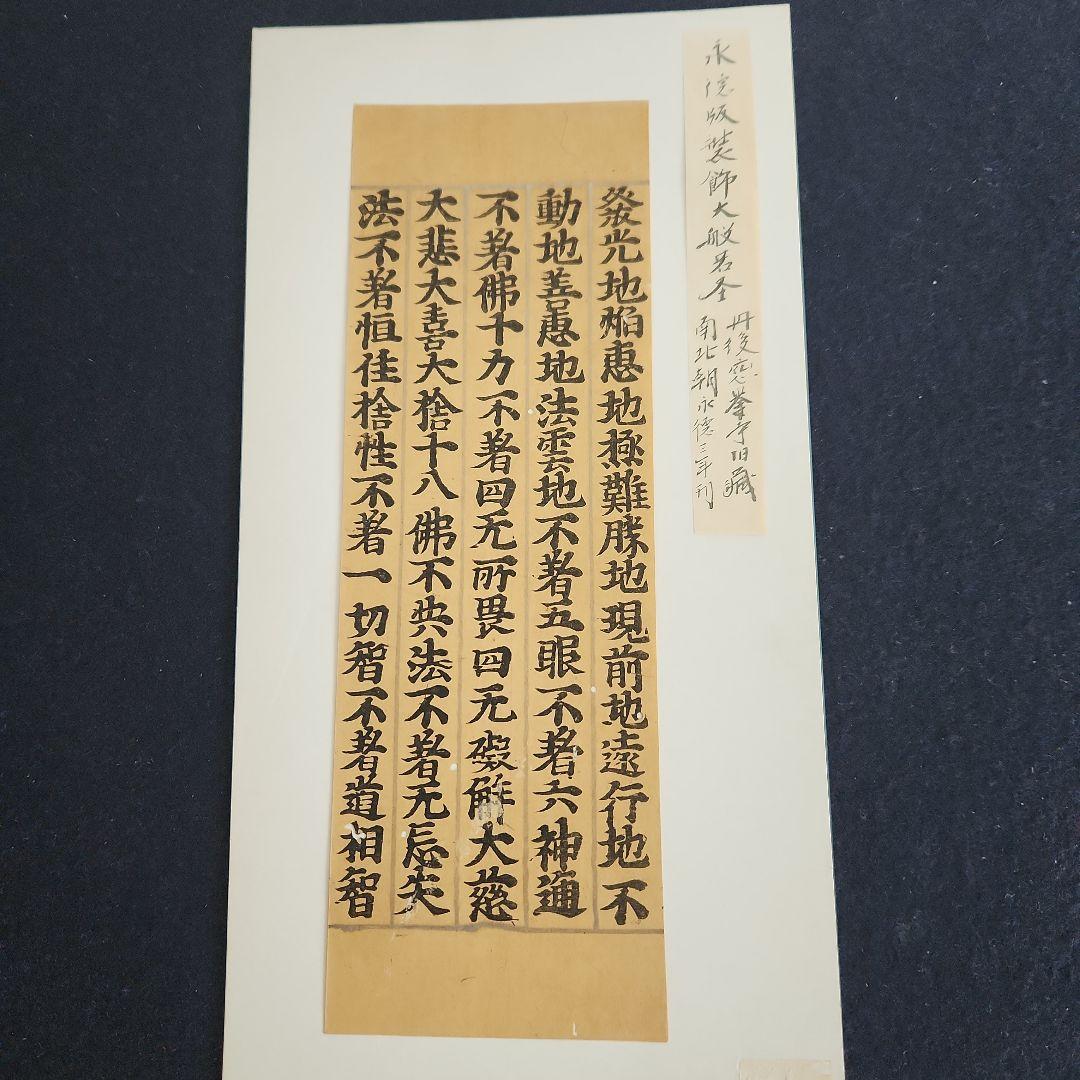 永徳版装飾大般若圣
丹後
南北朝永徳三年刊
發光地焔恵地極難勝地現前地遠行地不
動地善恵地法雲地不著五眼不著六神通
不著佛十力不著四无所畏四无礙解大慈
大悲大喜大捨十八佛不共法不著无忘失
法不著恒住捨性不著一切智不著道相智